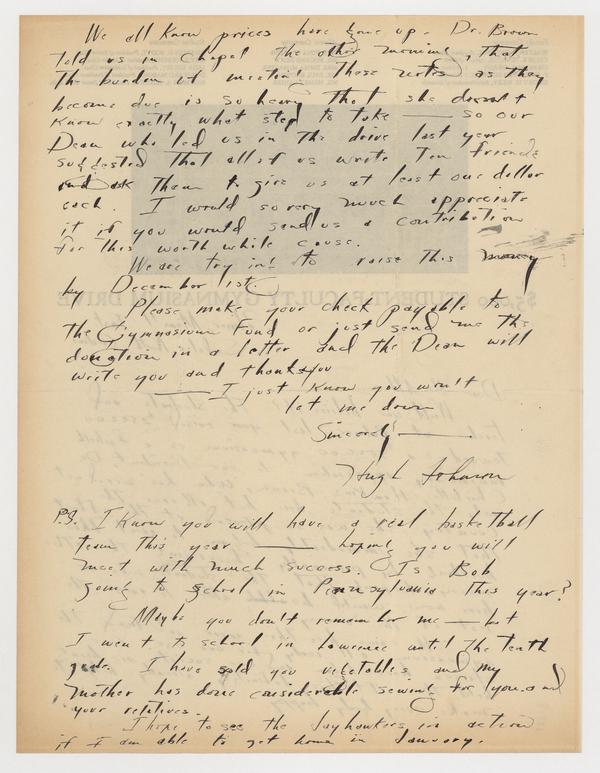 We all know prices have gone up. Dr. Brown
told us in chapel the other morning, that
the burden of meeting these notes as they
become due is so heavy that she doesn't
know exactly what step to take — so our
Dean who led us in the drive last year
suggested that all of us write ten friends
and ask them to give us at least one dollar
each. I would so very much appreciate
it if you would send us a contribution
for this worth while cause.
We are trying to raise this money
by December 1st.
STUDENT-FACULTY GYMNASIUM DRIVE
Please make your check payable to
the Gymnasium Fund or just send me the
donation in a letter and the Dean will
write you and thank you
— I just know you won't
let me down
Sincerely —
Hugh Johnson
P.S. I know you will have a real basketball
team this year — hoping you will
meet with much success. Is Bob
going to school in Pennsylvania this year?
Maybe you don't remember me — but
I went to school in Lawrence until the tenth
grade. I have sold you vegetables and my
mother has done considerable sewing for you and
your relatives.
I hope to see the Jayhawkers in action
if I am able to get home in January.